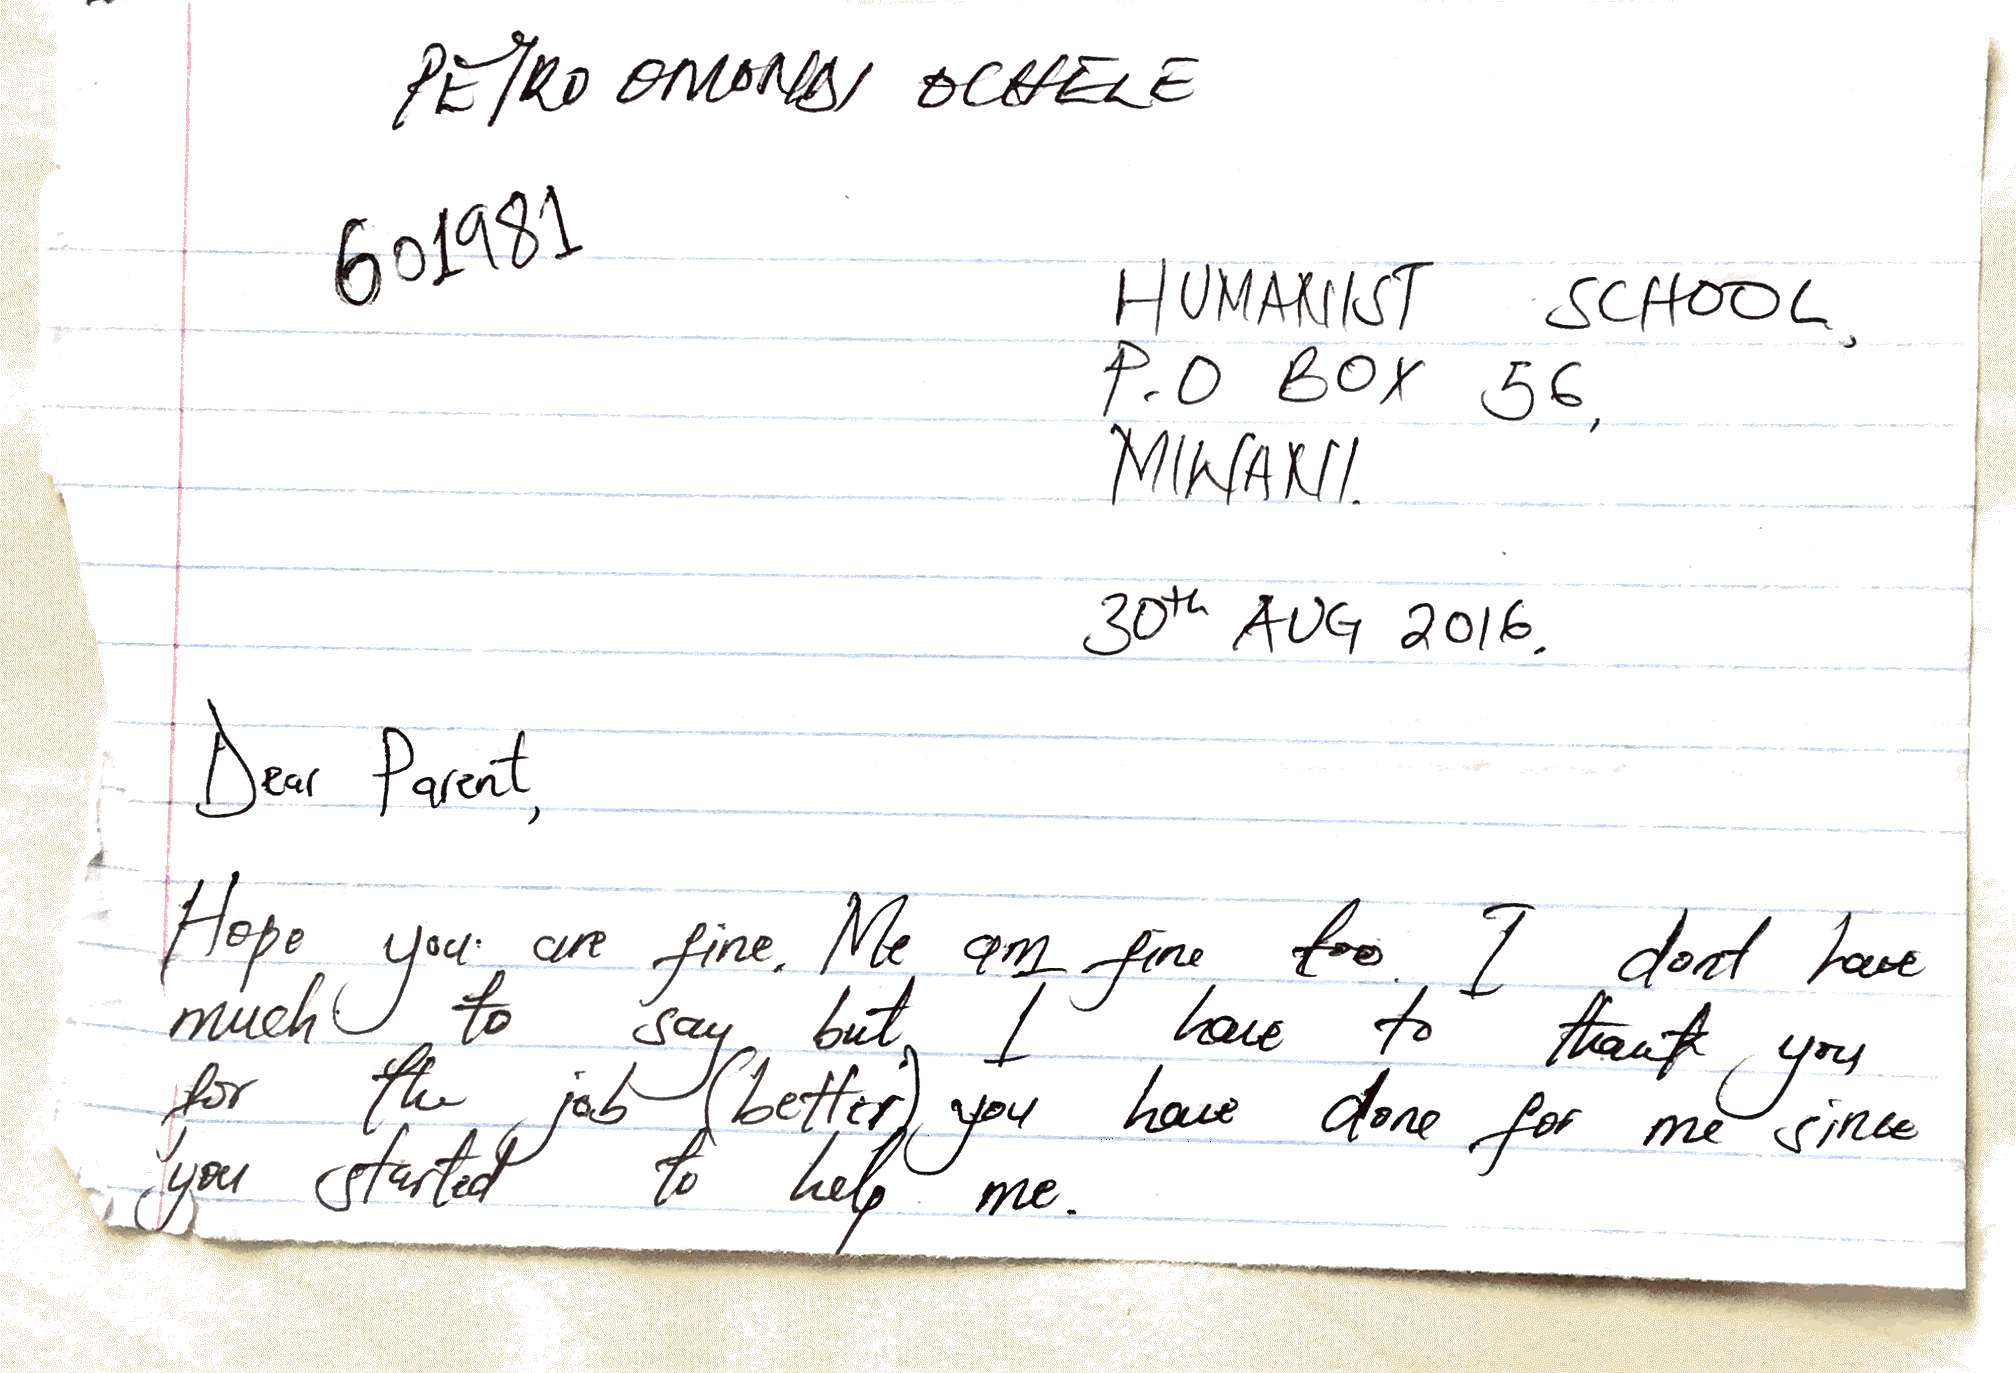 PETRO OMONDI OCHELE
601981
HUMANIST SCHOOL,
P.O BOX 56,
MIWANI.
30th AUG 2016.
Dear Parent,
Hope you are fine. Me am fine too. I dont have
much to say but I have to thank you
for the job (better) you have done for me since
you started to help me.